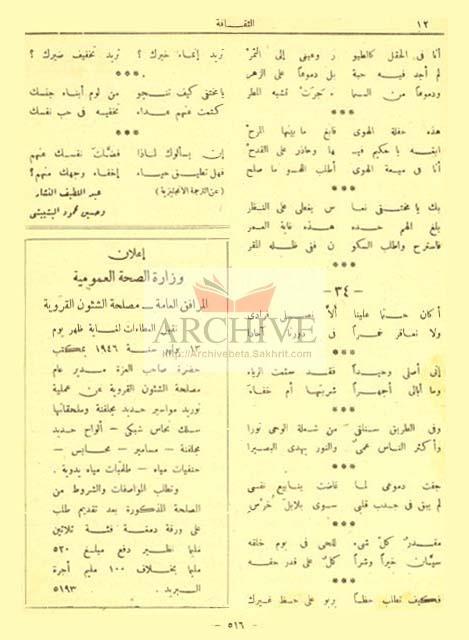 ١٢
الثقافة
أنا فى الحقل كالطيو ر وعينى إلى الثمَرْ
لم أجد فيه حبة بل دموعاً على الزهر
ودموعاً من السما ء جرَتْ تشبه المطر
***
هذه حفلة الهوى فابغ ما بينها المرحْ
ابغه يا حكيم فيـ ها وحاذر على القدحْ
أنا فى ميعة الهوى أطلب اللهو ما صلح
***
بك يا مختفى نعا س يغطى على النظر
بلغ الهم حده هذه غاية العمر
فاسترح واطلب السكو ن ففى ظله المقر
— ٣٤ —
أكان حتما علينا ألاّ نصلى فرادى
ولا نعاقر خمراً فى دورنا آحادا
***
إنى أصلى وحيداً فقد سئمت الرياء
وما أبالى أجهراً شربتها أم خفاء
***
وفى الطريق سنلقى من شعلة الوحى نورا
وأكثر الناس عمىٌ والنور يهدى البصيرا
***
جفت دموعى لما غاضت ينابيع نفسى
لم يبق فى جدب قلبى سوى بلابل خُرْس
***
مقدرٌ كلّ شىء للحى فى يوم خلقه
سيّان خيراً وشراً كلٌ على قدر حقه
***
فكيف تطلب حظاً يربو على حظ غيرك
تريد إنماء خيرك ؟ تريد تخفيف ضيرك ؟
***
يا مختفى كيف تنجو من لوم أبناء جنسك
كتمت عنهم عداء تخفيه فى حب نفسك
***
إن يسألوك لماذا فضّلت نفسك عنهم
فهل تطيق حياء إخفاء وجهك منهم؟
(عن الترجمة الانجليزية)
عبد اللطيف النشار
وحسين محمود البشبيشى
إعلان
وزارة الصحة العمومية
المرافق العامة — مصلحة الشئون القروية
تقبل العطاءات لغاية ظهر يوم
١٣ يوليه سنة ١٩٤٦ بمكتب
حضرة صاحب العزة مدير عام
مصلحة الشئون القروية عن عملية
توريد مواسير حديد مجلفنة وملحقاتها
سلك نحاس شبكى — ألواح حديد
مجلفنة — مسامير — محابس —
حنفيات مياه — طلمبات مياه يدوية .
وتطلب المواصفات والشروط من
المصلحة المذكورة بعد تقديم طلب
على ورقة دمغة فئة ثلاثين
مليما نظير دفع مبلغ ٥٢٠
مليما بخلاف ١٠٠ مليم أجرة
البريد . ٥١٩٣
ARCHIVE
http://Archivebeta.Sakhrit.com
— ٥١٦ —